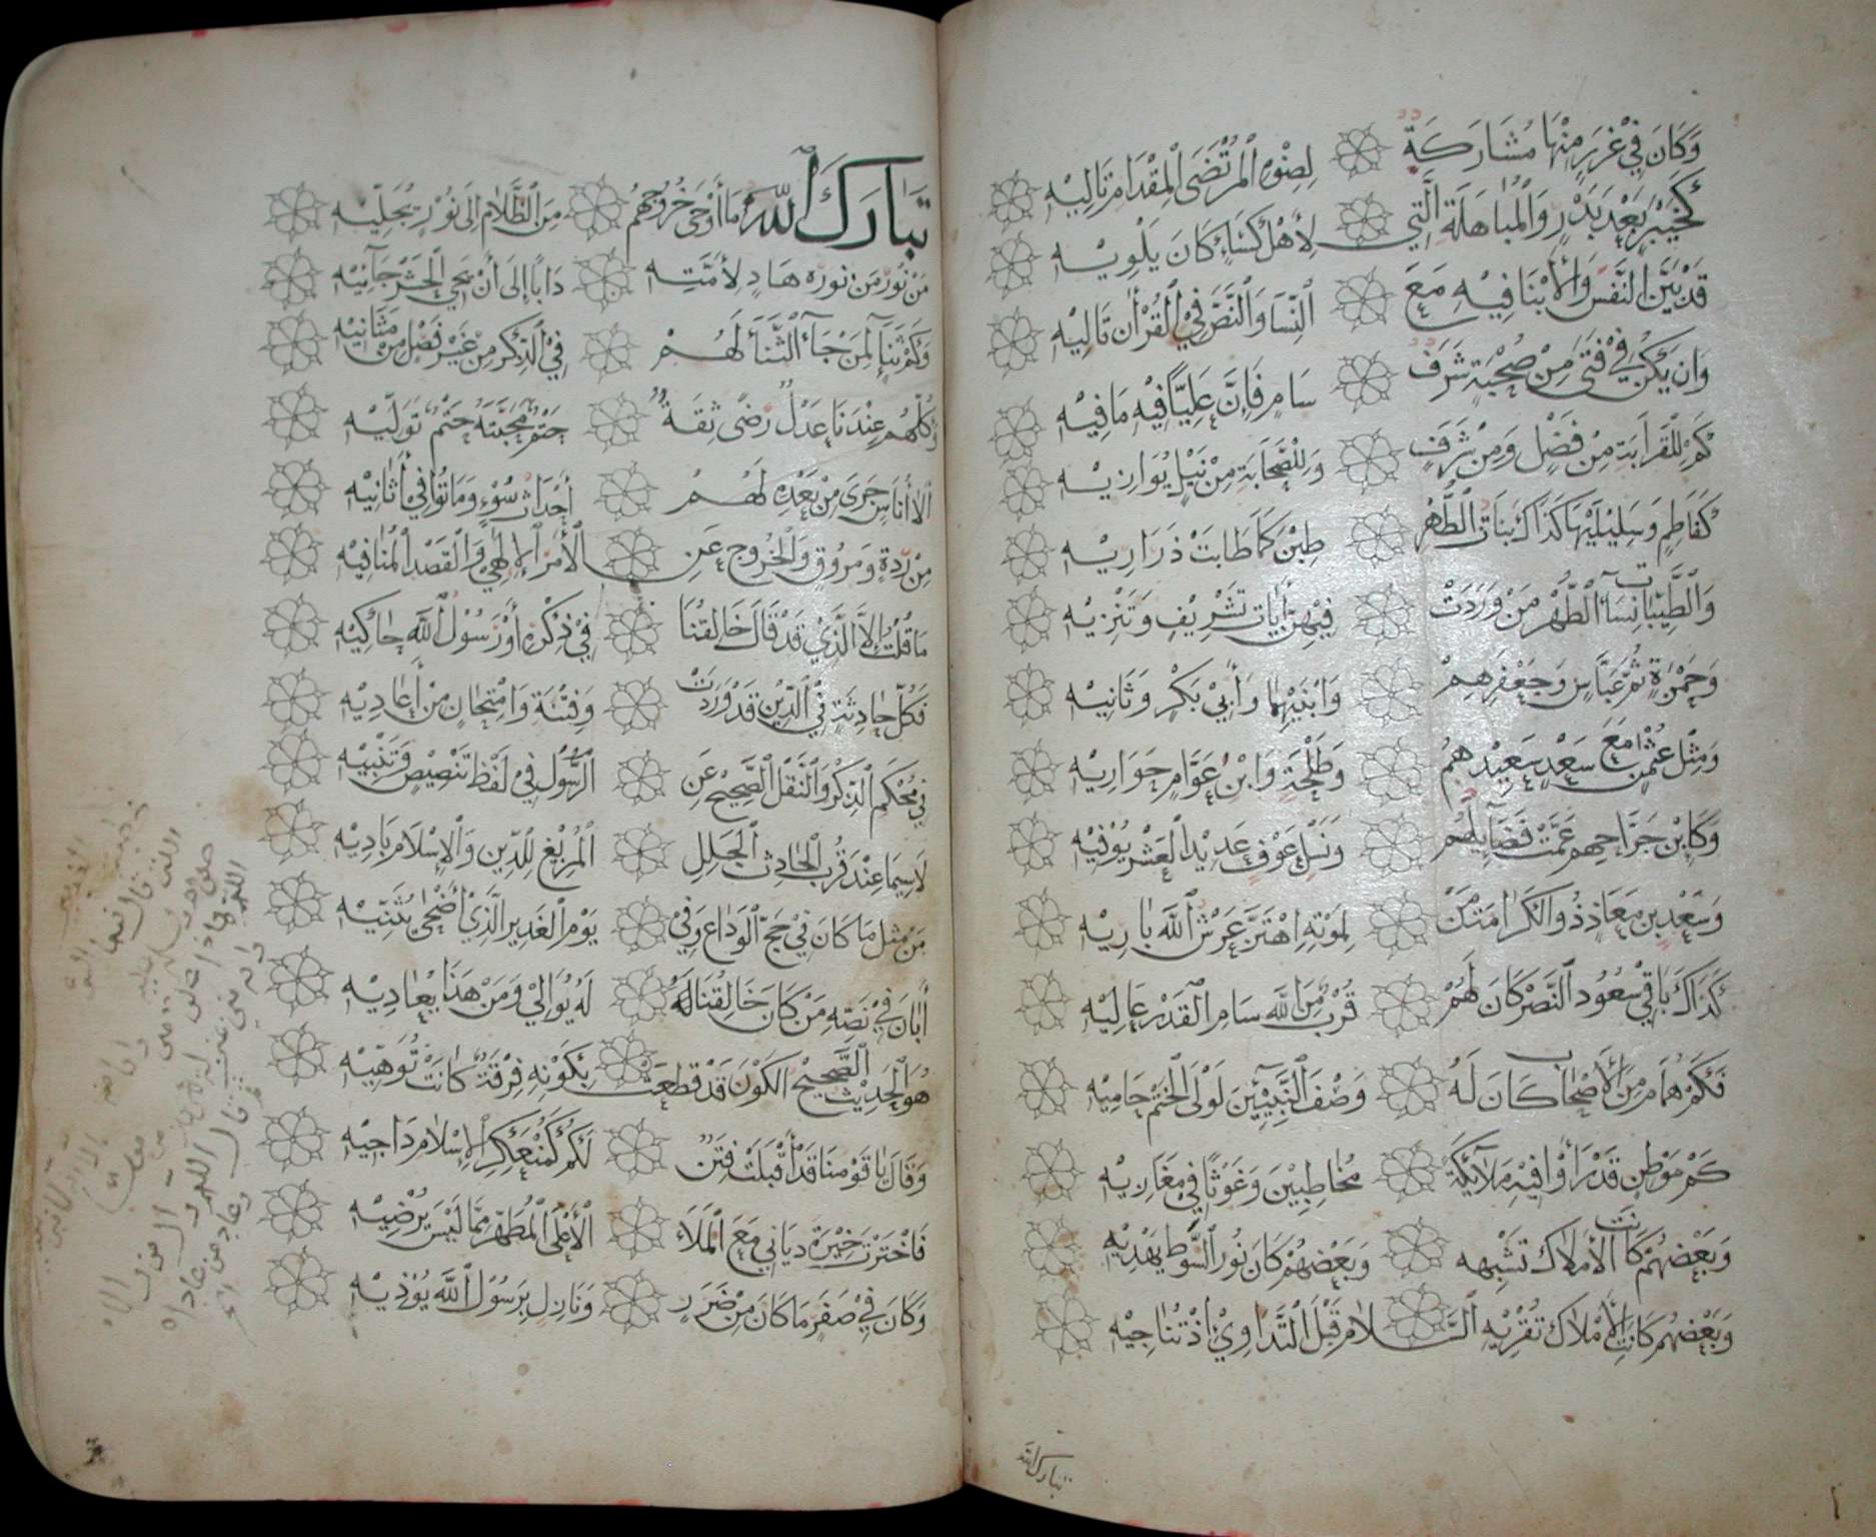 وَكَانَ فِيْ غُرَرٍ مِنْهَا مُشَارَكَةٌ لِصِنْوِهِ الْمُرْتَضَى الْمِقْدَامِ تَالِيْهِ
كَخَيْبَرٍ بَعْدَ بَدْرٍ وَالْمُبَاهَلَةِ الَّتِي لِأَهْلِ كِسَاءٍ كَانَ يَلْوِيْهِ
قَدْ بَيَّنَ النَّفْسَ وَالْأَبْنَا فِيْهِ مَعَ النِّسَا وَالنَّصُّ فِي الْقُرْآنِ تَالِيْهِ
وَإِنْ يَكُنْ فِيْ فَتًى مِنْ صُحْبَةٍ شَرَفٌ سَامٍ فَإِنَّ عَلِيًّا فِيْهِ مَا فِيْهِ
كَمْ لِلْقَرَابَةِ مِنْ فَضْلٍ وَمِنْ شَرَفٍ وَلِلصَّحَابَةِ مِنْ نَيْلٍ يُوَازِيْهِ
كَفَاطِمٍ وَسَلِيْلَيْهَا كَذَاكَ بَنَاتُ الطُّهْرِ طِبْنَ كَمَا طَابَتْ ذَرَارِيْهِ
وَالطَّيِّبَاتُ نِسَاءُ الطُّهْرِ مَنْ وَرَدَتْ فِيْهِنَّ أٰيَاتُ تَشْرِيْفٍ وَتَنْزِيْهِ
وَحَمْزَةٍ ثُمَّ عَبَّاسٍ وَجَعْفَرِهِمْ وَابْنَيْهِمَا وَأَبِيْ بَكْرٍ وَثَانِيْهِ
وَمِثْلِ عُثْمٰنَ مَعَ سَعْدٍ سَعِيْدِهِمُ وَطَلْحَةٍ وَابْنِ عَوَّامٍ حَوَارِيْهِ
وَكَابْنِ جَرَّاحِهِمْ عَمَّتْ فَضَائِلُهُمْ وَنَسْلِ عَوْفٍ عَدِيْدَ الْعَشْرِ يُوْفِيْهِ
وَسَعْدِ بْنِ مُعَاذٍ ذُو الْكَرَامَةِ مَنْ لِمَوْتِهِ اهْتَزَّ عَرْشُ اللّٰهِ بَارِيْهِ
كَذَاكَ بَاقِيْ سُعُوْدِ النَّصْرِ كَانَ لَهُمْ قُرْبٌ مِنَ اللّٰهِ سَامِ الْقَدْرِ عَالِيْهِ
فَكَمْ هُمَامٍ مِنَ الْأَصْحَابِ كَانَ لَهُ وَصْفُ النَّبِيِّيْنَ لَوْلَى الْخَتْمِ حَامِيْهِ
كَمْ مَوْطِنٍ قَدْ رَأَوْا فِيْهِ مَلَائِكَةً مُخَاطِبِيْنَ وَغَوْثًا فِي مَغَازِيْهِ
وَبَعْضُهُمْ كَانَتِ الْأَمْلَاكُ تُشْبِهُهُ وَبَعْضُهُمْ كَانَ نُوْرُ السَّوْطِ يَهْدِيْهِ
وَبَعْضُهُمْ كَانَتِ الْأَمْلَاكُ تُقْرِيْهِ السَّلَامَ قَبْلَ التَّدَاوِيْ إِذْ تُنَاجِيْهِ
تبارك الله
تَبَارَكَ اللّٰهُ مَا أَوْحَى خُرُوْجَهُمُ مِنَ الظَّلَامِ إِلَى نُوْرٍ يُجَلِّيْهِ
مَنْ نُوْرُ مَنْ نَوَّرَهُ هَادٍ لِأُمَّتِهِ دَأْبًا إِلَى أَنْ يَجِي الْحَشْرُ جَائِيْهِ
وَكَمْ ثَنَاءٍ لِمَنْ جَاءَ الثَّنَاءُ لَهُمْ فِي الذِّكْرِ مِنْ غَيْرِ فَصْلٍ مِنْ مَثَانِيْهِ
وَكُلُّهُمْ عِنْدَنَا عَدْلٌ رِضًى ثِقَةٌ حَتْمٌ مَحَبَّتُهُ حَتْمٌ تَوَلِّيْهِ
إِلَّا أُنَاسٌ جَرَى مِنْ بَعْدِهِ لَهُمُ أَحْدَاثُ سُوْءٍ وَمَاتُوْا فِيْ أَثَانِيْهِ
مِنْ رِدَّةٍ وَمُرُوْقٍ وَالْخُرُوْجِ عَنِ الْأَمْرِ الْإِلٰهِيِّ وَالْقَصْدِ الْمُنَافِيْهِ
مَا قُلْتُ إِلَّا الَّذِيْ قَدْ قَالَ خَالِقُنَا فِيْ ذِكْرِهِ أَوْ رَسُوْلُ اللّٰهِ حَاكِيْهِ
فَكُلُّ حَادِثَةٍ فِي الدِّيْنِ قَدْ وَرَدَتْ وَفِتْنَةٍ وَامْتِحَانٍ مِنْ أَعَادِيْهِ
فِيْ مُحْكَمِ الذِّكْرِ وَالنَّقْلِ الصَّحِيْحِ عَنِ الرَّسُوْلِ فِيْ لَفْظِ تَنْصِيْصٍ وَتَنْبِيْهِ
لَا سِيَّمَا عِنْدَ قُرْبِ الْحَادِثِ الْجَلَلِ الْمُزِيْغِ لِلدِّيْنِ وَالْإِسْلَامِ بَادِيْهِ
مِنْ مِثْلِ مَا كَانَ فِيْ حَجِّ الْوَدَاعِ وَفِيْ يَوْمِ الْغَدِيْرِ الَّذِيْ أَضْحَى يُثَنِّيْهِ
أَبَانَ فِيْ نَصِّهِ مَنْ كَانَ خَالِقُنَا لَهُ يُوَالِيْ وَمَنْ هٰذَا يُعَادِيْهِ
هُوَ الْحَدِيْثُ الصَّحِيْحُ الْكَوْنِ قَدْ قَطَعَتْ بِكَوْنِهِ فِرْقَةٌ كَانَتْ تُوَهِّيْهِ
وَقَالَ يَا قَوْمَنَا قَدْ أَقْبَلَتْ فِتَنٌ لَكُمْ كَمُنْعَكِرِ الْإِسْلَامِ دَاجِيْهِ
فَاخْتَرْتُ خِيْرَةَ دَيَّانِيْ مَعَ الْمَلَاءِ الْأَعْلَى الْمُطَهَّرِ مِمَّا لَيْسَ يُرْضِيْهِ
وَكَانَ فِيْ صَفَرٍ مَا كَانَ مِنْ ضَرَرٍ وَنَازِلٍ بِرَسُوْلِ اللّٰهِ يُوْذِيْهِ